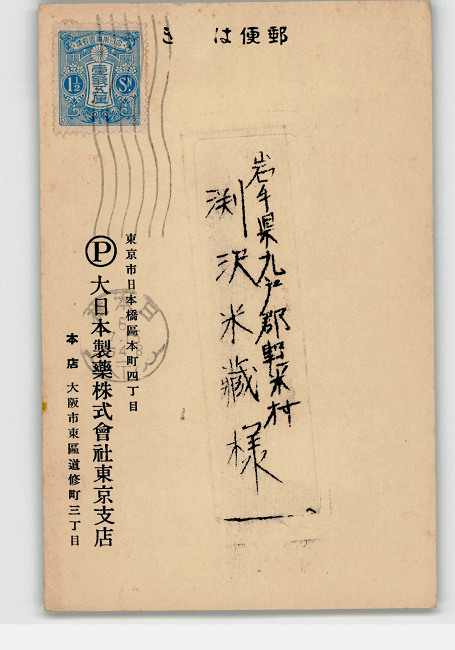 郵便はき
岩手県九戸郡軽米村
渕沢米藏様
東京市日本橋區本町四丁目
Ⓟ大日本製藥株式會社東京支店
本店 大阪市東區道修町三丁目
壹錢五厘
1½ Sn